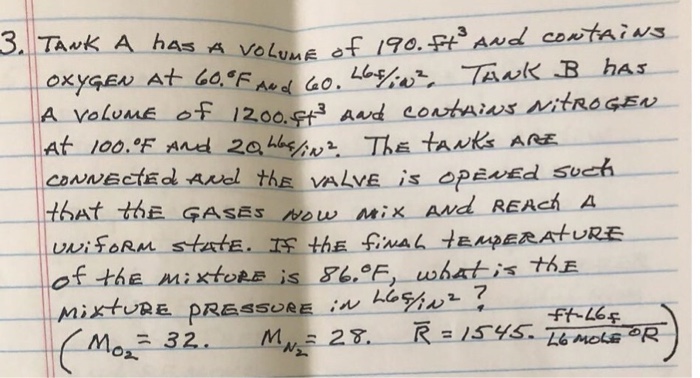 3. TANK A hAS A VOLUME of 190. ft³ AND CONTAINS
OXYGEN At 60.°F ANd 60. Lbf/in². TANK B hAS
A VOLUME of 1200. ft³ ANd CONTAINS NitROGEN
At 100.°F ANd 20. Lbf/iN². ThE tANKS ARE
CONNECtEd ANd thE VALVE is OPENEd Such
thAt thE GASES NOW MiX AND REACh A
UNifORM StAtE. If thE fiNAL tEMPERAtURE
of thE MixtURE is 86.°F, whAt is thE
MixtURE PRESSURE iN Lbf/iN²?
(M_O₂ = 32. M_N₂ = 28. R̄ = 1545. ft-Lbf / Lb MOLE °R)